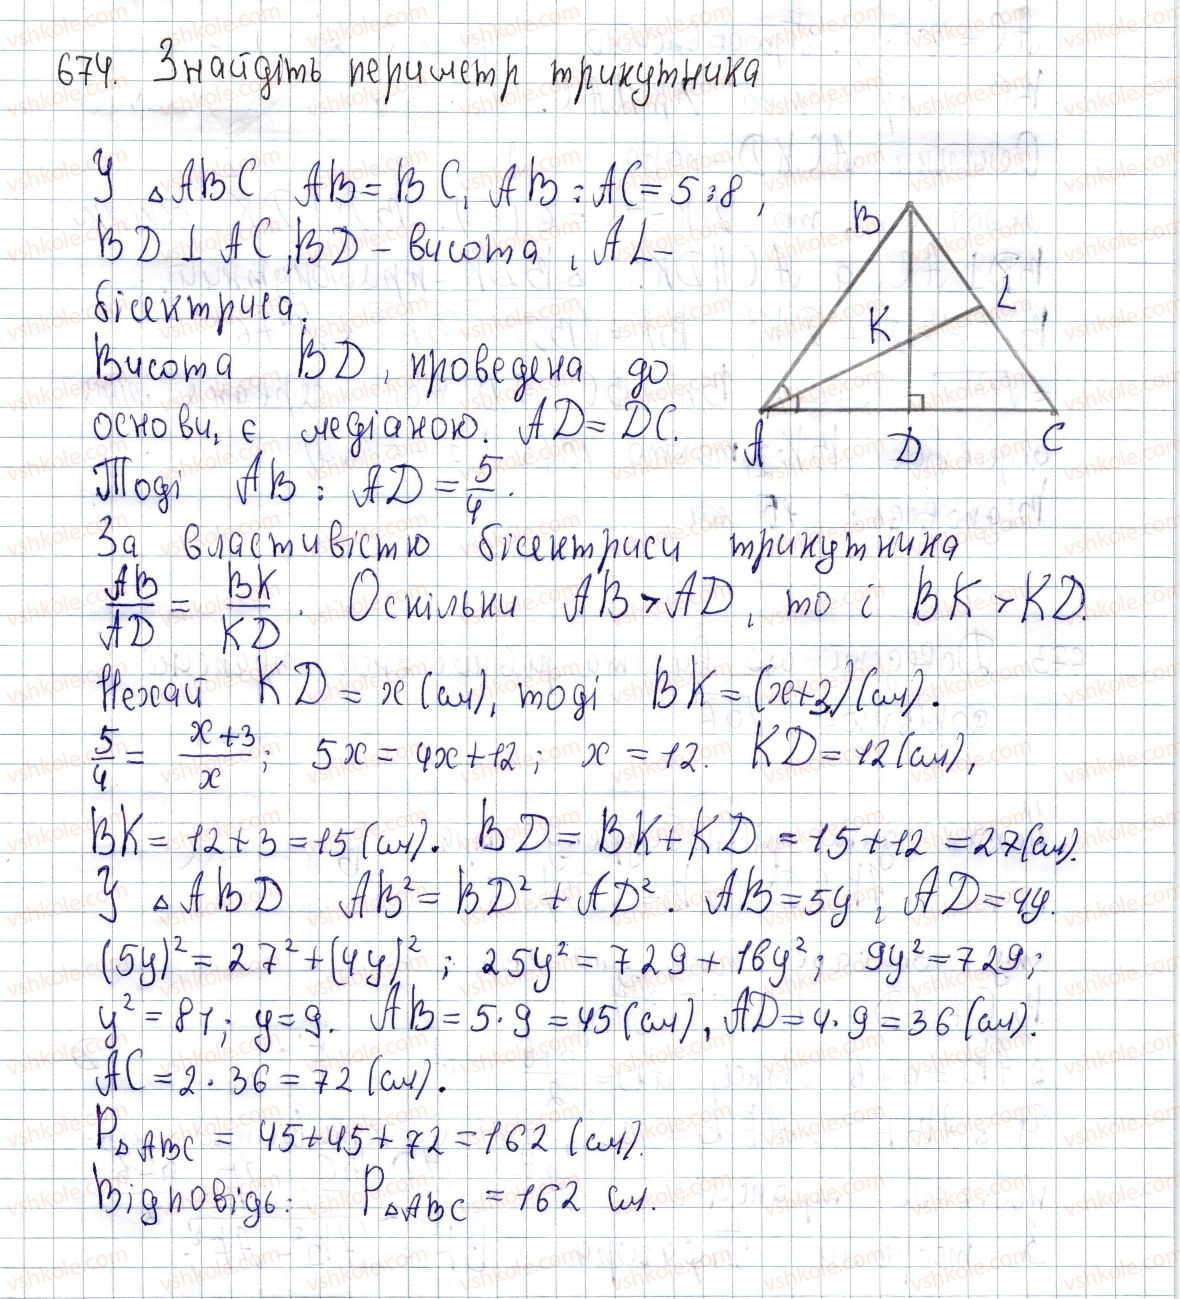 674. Знайдіть периметр трикутника
У △ABC AB = BC, AB : AC = 5 : 8,
BD ⊥ AC, BD – висота, AL –
бісектриса.
Висота BD, проведена до
основи, є медіаною. AD = DC.
Тоді AB : AD = 5/4.
За властивістю бісектриси трикутника
AB/AD = BK/KD. Оскільки AB > AD, то і BK > KD.
Нехай KD = x (см), тоді BK = (x+3) (см).
5/4 = (x+3)/x; 5x = 4x+12; x = 12. KD = 12 (см),
BK = 12+3 = 15 (см). BD = BK+KD = 15+12 = 27 (см).
У △ABD AB² = BD² + AD². AB = 5y, AD = 4y.
(5y)² = 27² + (4y)²; 25y² = 729 + 16y²; 9y² = 729;
y² = 81; y = 9. AB = 5·9 = 45 (см), AD = 4·9 = 36 (см).
AC = 2·36 = 72 (см).
P△ABC = 45+45+72 = 162 (см).
Відповідь: P△ABC = 162 см.
B
L
K
A
D
C